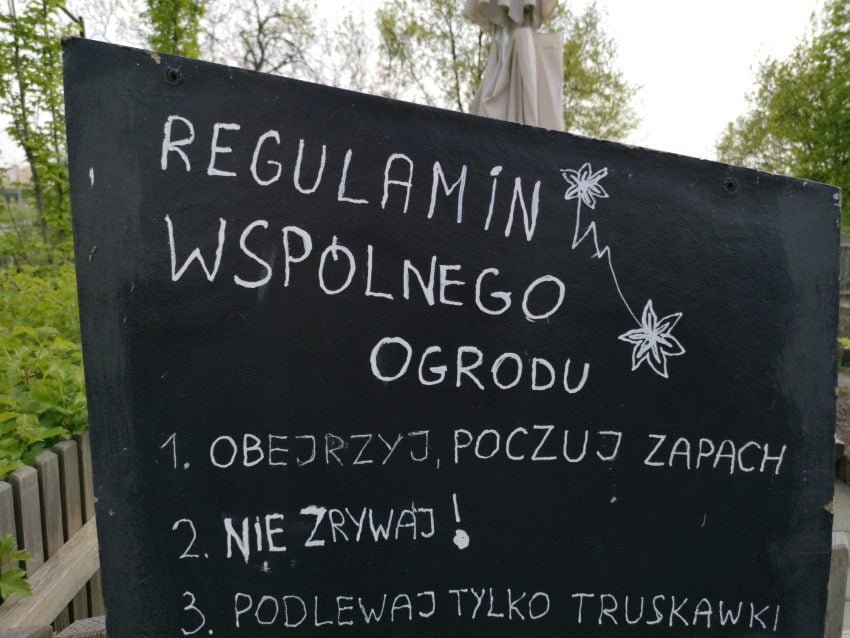 REGULAMIN
WSPÓLNEGO
OGRODU
1. OBEJRZYJ, POCZUJ ZAPACH
2. NIE ZRYWAJ!
3. PODLEWAJ TYLKO TRUSKAWKI